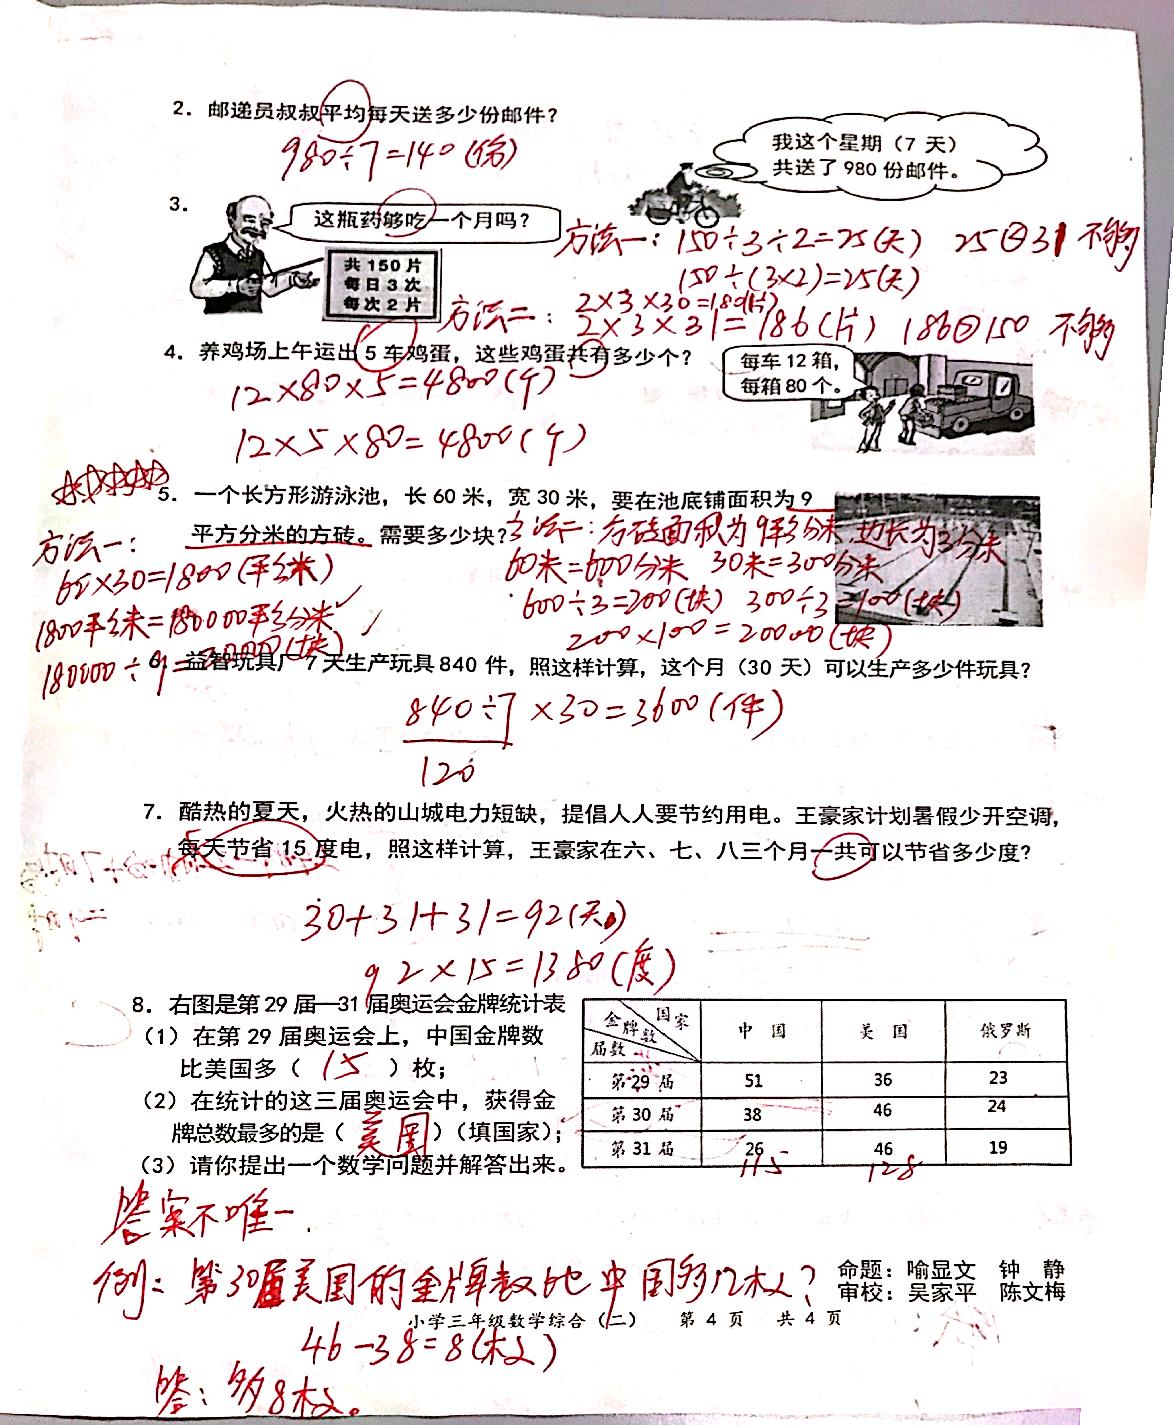 2. 邮递员叔叔平均每天送多少份邮件？
980÷7=140(份)
我这个星期（7 天）
共送了 980 份邮件。
3.
这瓶药够吃一个月吗？
共 150 片
每日 3 次
每次 2 片
方法一：150÷3÷2=25(天) 25<31 不够
150÷(3×2)=25(天)
2×3×30=180(片)
方法二：2×3×31=186(片) 186>150 不够
4. 养鸡场上午运出 5 车鸡蛋，这些鸡蛋共有多少个？
每车 12 箱，
每箱 80 个。
12×80×5=4800(个)
12×5×80=4800(个)
5. 一个长方形游泳池，长 60 米，宽 30 米，要在池底铺面积为 9
平方分米的方砖。需要多少块？
方法一：
60×30=1800(平方米)
1800平方米=180000平方分米
180000÷9=20000(块)
方法二：方砖面积为9平方分米，边长为3分米
60米=600分米 30米=300分米
600÷3=200(块) 300÷3=100(块)
200×100=20000(块)
6. 益智玩具厂 7 天生产玩具 840 件，照这样计算，这个月（30 天）可以生产多少件玩具？
840÷7×30=3600(件)
120
7. 酷热的夏天，火热的山城电力短缺，提倡人人要节约用电。王豪家计划暑假少开空调，
每天节省 15 度电，照这样计算，王豪家在六、七、八三个月一共可以节省多少度？
30+31+31=92(天)
92×15=1380(度)
8. 右图是第 29 届—31 届奥运会金牌统计表
（1）在第 29 届奥运会上，中国金牌数
比美国多（ 15 ）枚；
（2）在统计的这三届奥运会中，获得金
牌总数最多的是（ 美国 ）（填国家）；
（3）请你提出一个数学问题并解答出来。
金牌数 国家 届数 中 国 美 国 俄罗斯
第 29 届 51 36 23
第 30 届 38 46 24
第 31 届 26 46 19
115 128
答案不唯一.
例：第30届美国的金牌数比中国多几枚？
46-38=8(枚)
答：多8枚。
命题：喻显文 钟 静
审校：吴家平 陈文梅
小学三年级数学综合（二） 第 4 页 共 4 页